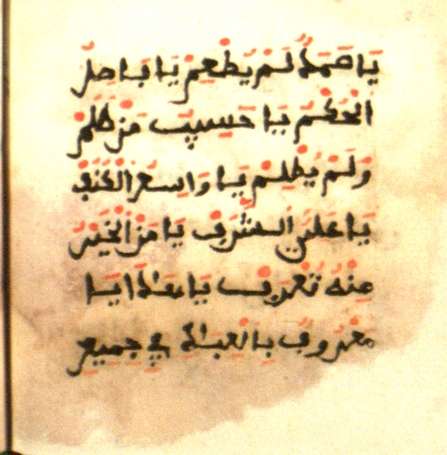 يَا صَمَدُ لَمْ يُطْعَمْ يَا فَاصِلَ
الْحُكْمِ يَا حَسِيبَ مَنْ ظُلِمَ
وَلَمْ يَظْلِمْ يَا وَاسِعَ الْكَنَفِ
يَا عَلِيَّ الشَّرَفِ يَا مَنِ الْخَيْرُ
مِنْهُ يَا يَا
مَعْرُوفُ فِي جَمِيعِ